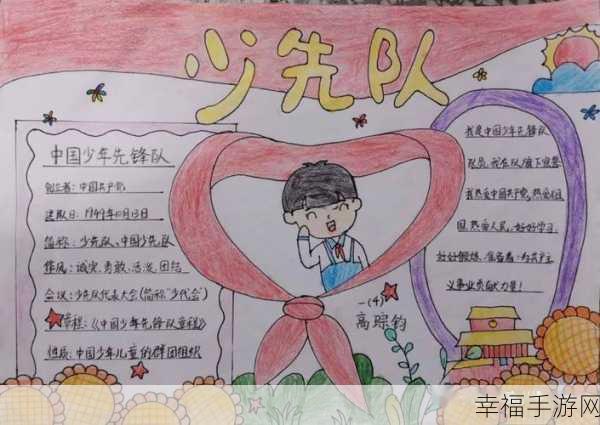 少先队
中国少年先锋队
创立者：中国共产党
建队日：1949年10月13日
简称：少先队、中国少先队
作风：诚实、勇敢、活泼、团结
会议：少先队代表大会(简称"少代会")
章程：《中国少年先锋队章程》
性质：中国少年儿童的群团组织
一(4)
高琮钧
我是中国少年先锋队
队员,我在队旗下宣誓
我热爱中国共产党,热爱祖
国,热爱人民,好好学习,
好好锻炼,准备着:为共产主
义事业贡献力量!
幸福手游网